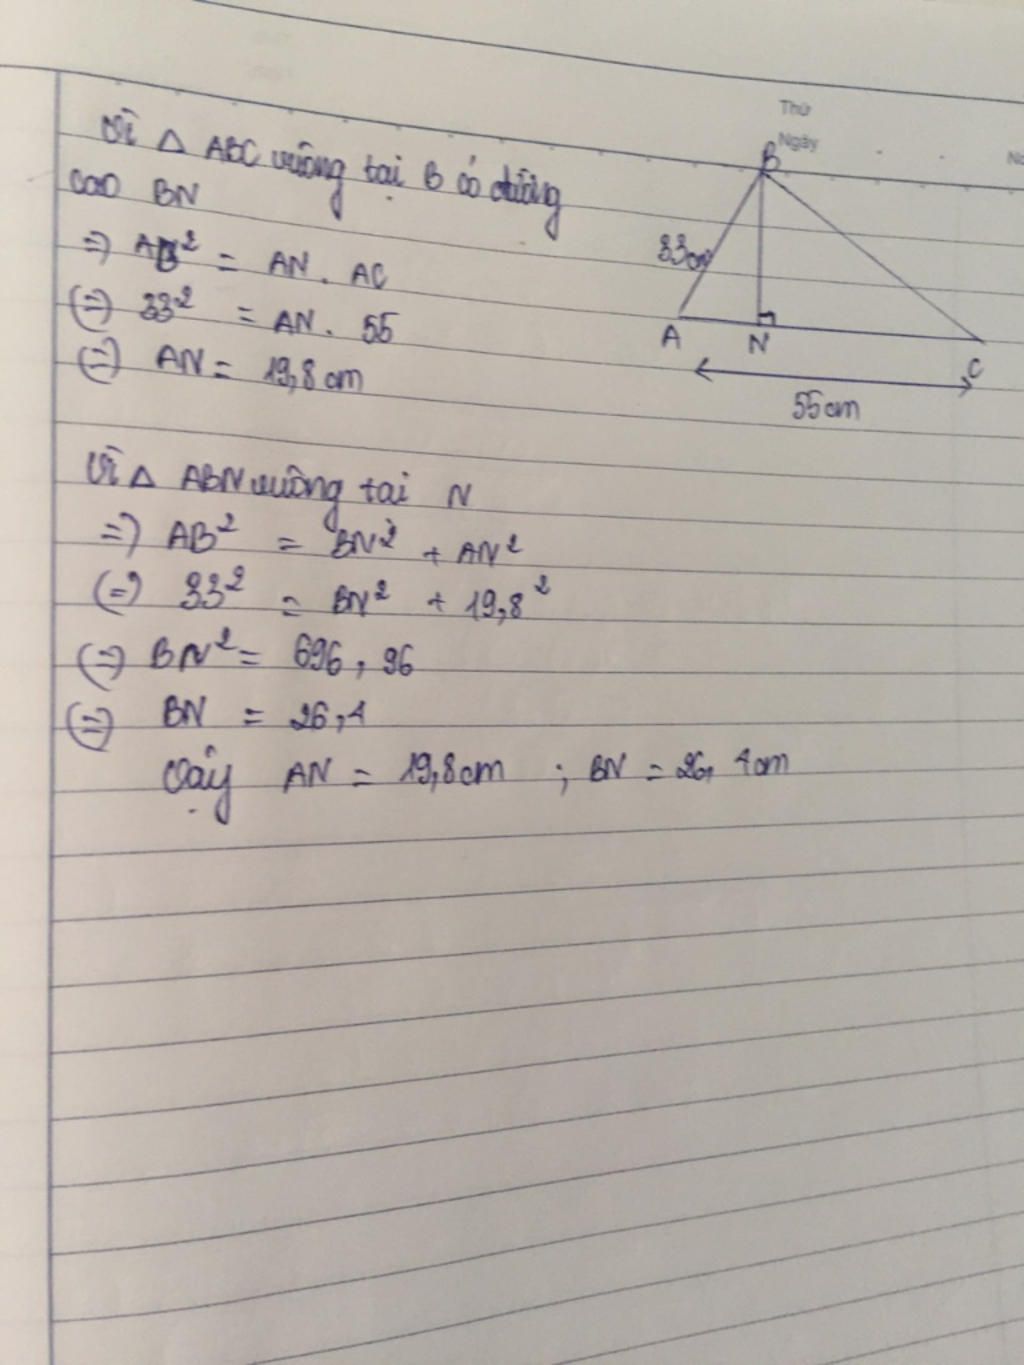 Thứ
Ngày
Vì △ ABC vuông tại B có đường
cao BN
=> AB² = AN . AC
(=) 33² = AN . 55
(=) AN = 19,8 cm
B
33cm
A
N
C
55cm
Vì △ ABN vuông tai N
=) AB² = BN² + AN²
(=) 33² = BN² + 19,8²
(=) BN² = 696,96
(=) BN = 26,4
Vậy AN = 19,8cm ; BN = 26,4cm